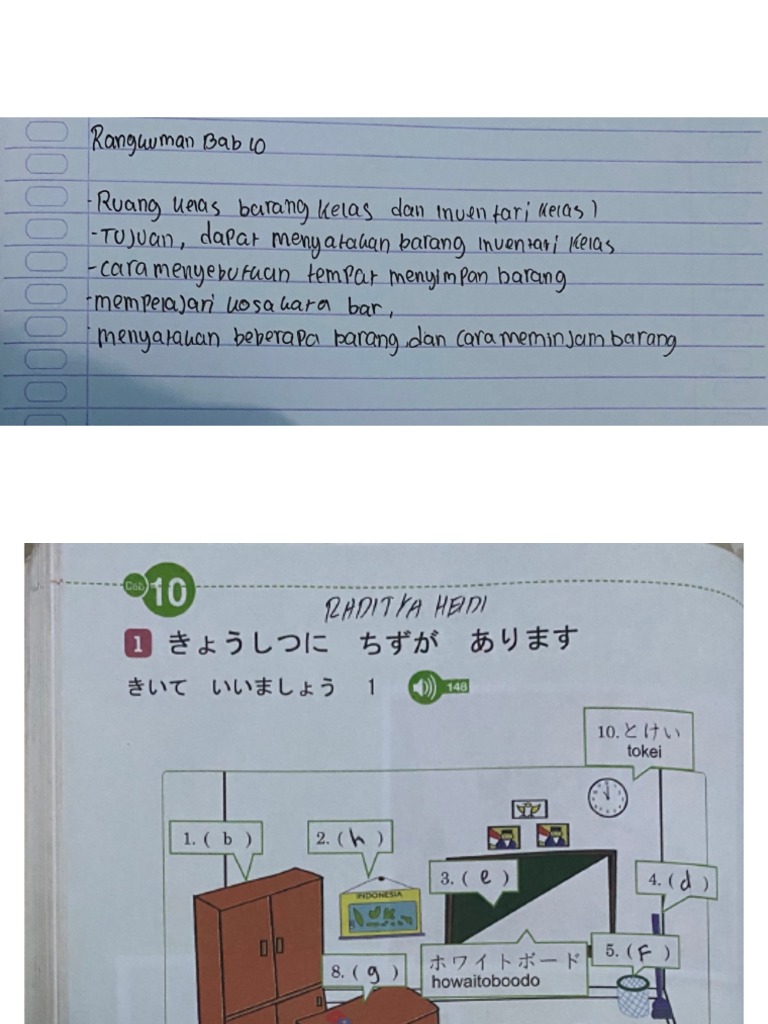 Rangkuman Bab 10
- Ruang kelas barang kelas dan inventari kelas)
- Tujuan, dapat menyatakan barang inventari kelas
- cara menyebutkan tempat menyimpan barang
- mempelajari kosakata bar,
- menyatakan beberapa barang, dan cara meminjam barang
Bab 10
RADITYA HEDI
1 きょうしつに ちずが あります
きいて いいましょう 1 148
10.とけい
tokei
1. ( b )
2. ( h )
INDONESIA
3. ( e )
4. ( d )
ホワイトボード
howaitoboodo
5. ( F )
8. ( g )